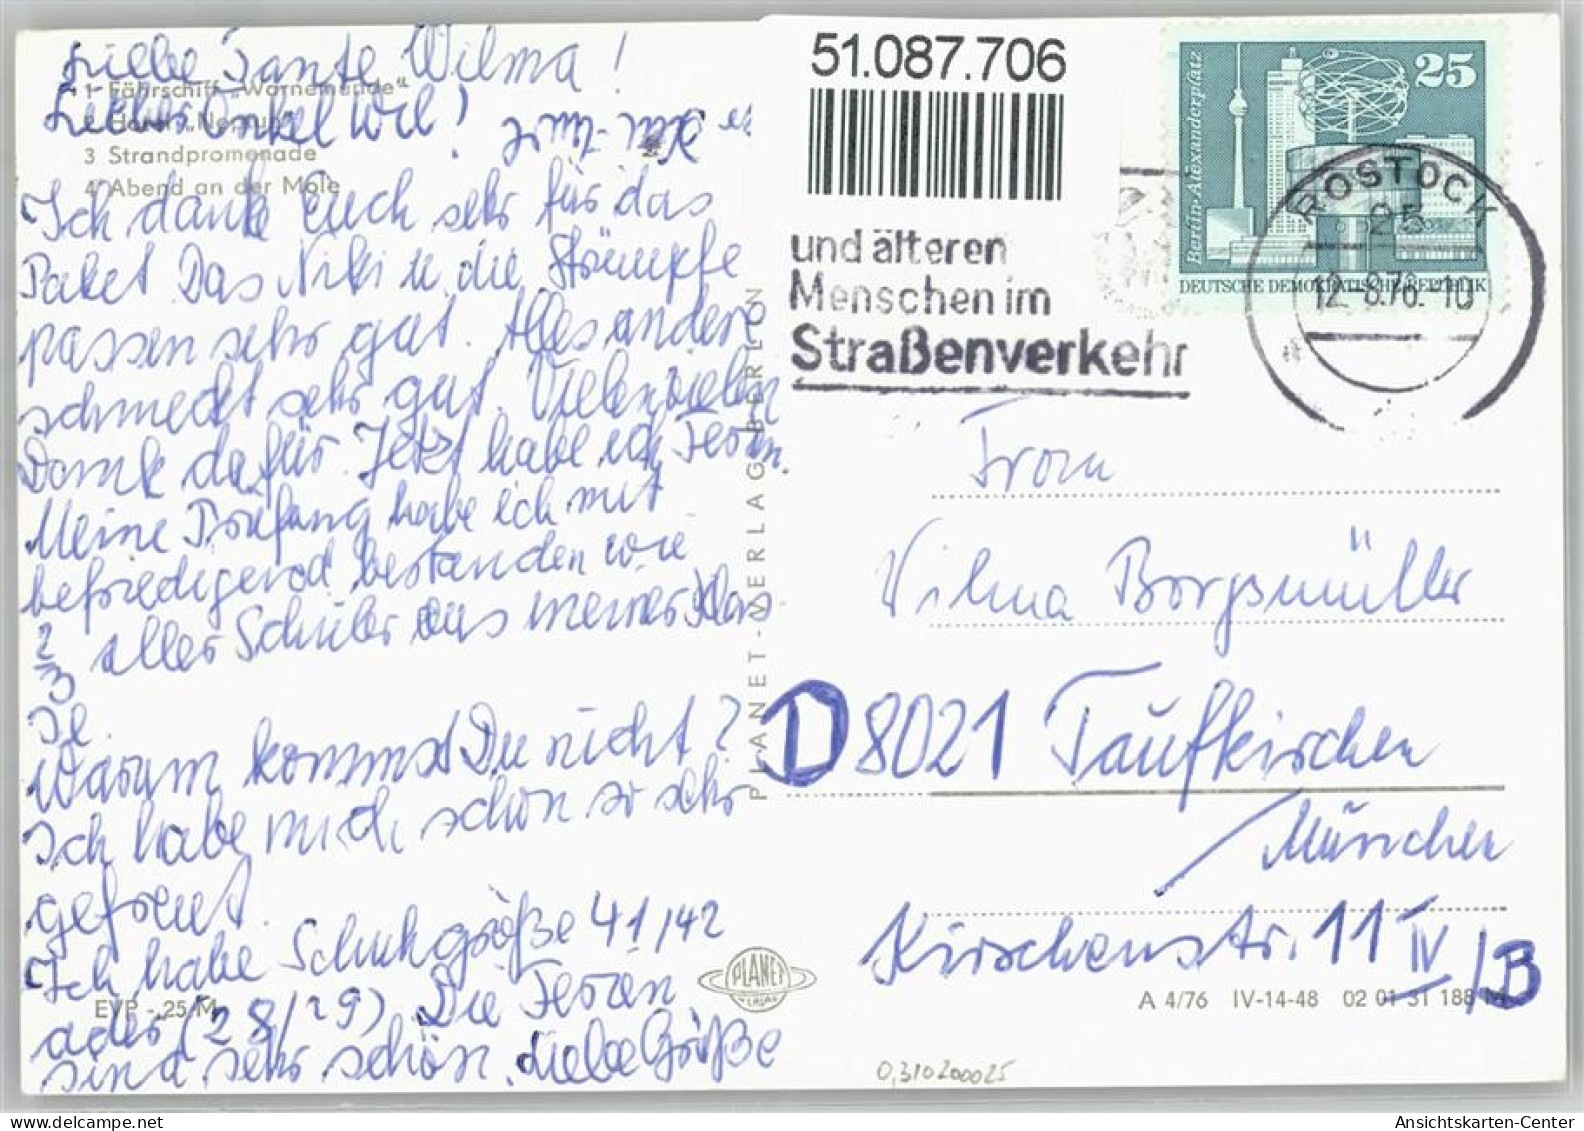 Liebe Tante Wilma!
Lieber Onkel Wil!
1 Fährschiff „Warnemünde“
2 Hotel „Neptun“
3 Strandpromenade
4 Abend an der Mole
Ich danke Euch sehr für das
Paket Das Niki u die Strümpfe
passen sehr gut. Alles andere
schmeckt sehr gut. Vielen vielen
Dank dafür. Jetzt habe ich Ferien.
Meine Prüfung habe ich mit
befriedigend bestanden wie
2/3 aller Schüler aus meiner Klas
Warum kommst Du nicht?
Ich habe mich schon so sehr
gefreut.
Ich habe Schuhgröße 41/42
oder (28/29) Die Ferien
sind sehr schön. Liebe Grüße
EVP -,25 M
PLANET-VERLAG BERLIN
PLANET
VERLAG
51.087.706
und älteren
Menschen im
Straßenverkehr
25
Berlin-Alexanderplatz
DEUTSCHE DEMOKRATISCHE REPUBLIK
ROSTOCK
25
12.8.76.-10
Frau
Wilma Borgsmüller
D 8021 Taufkirchen
/München
Kirchenstr. 11 IV/B
A 4/76 IV-14-48 02 01 31 188 M
0,310200025
Ansichtskarten-Center